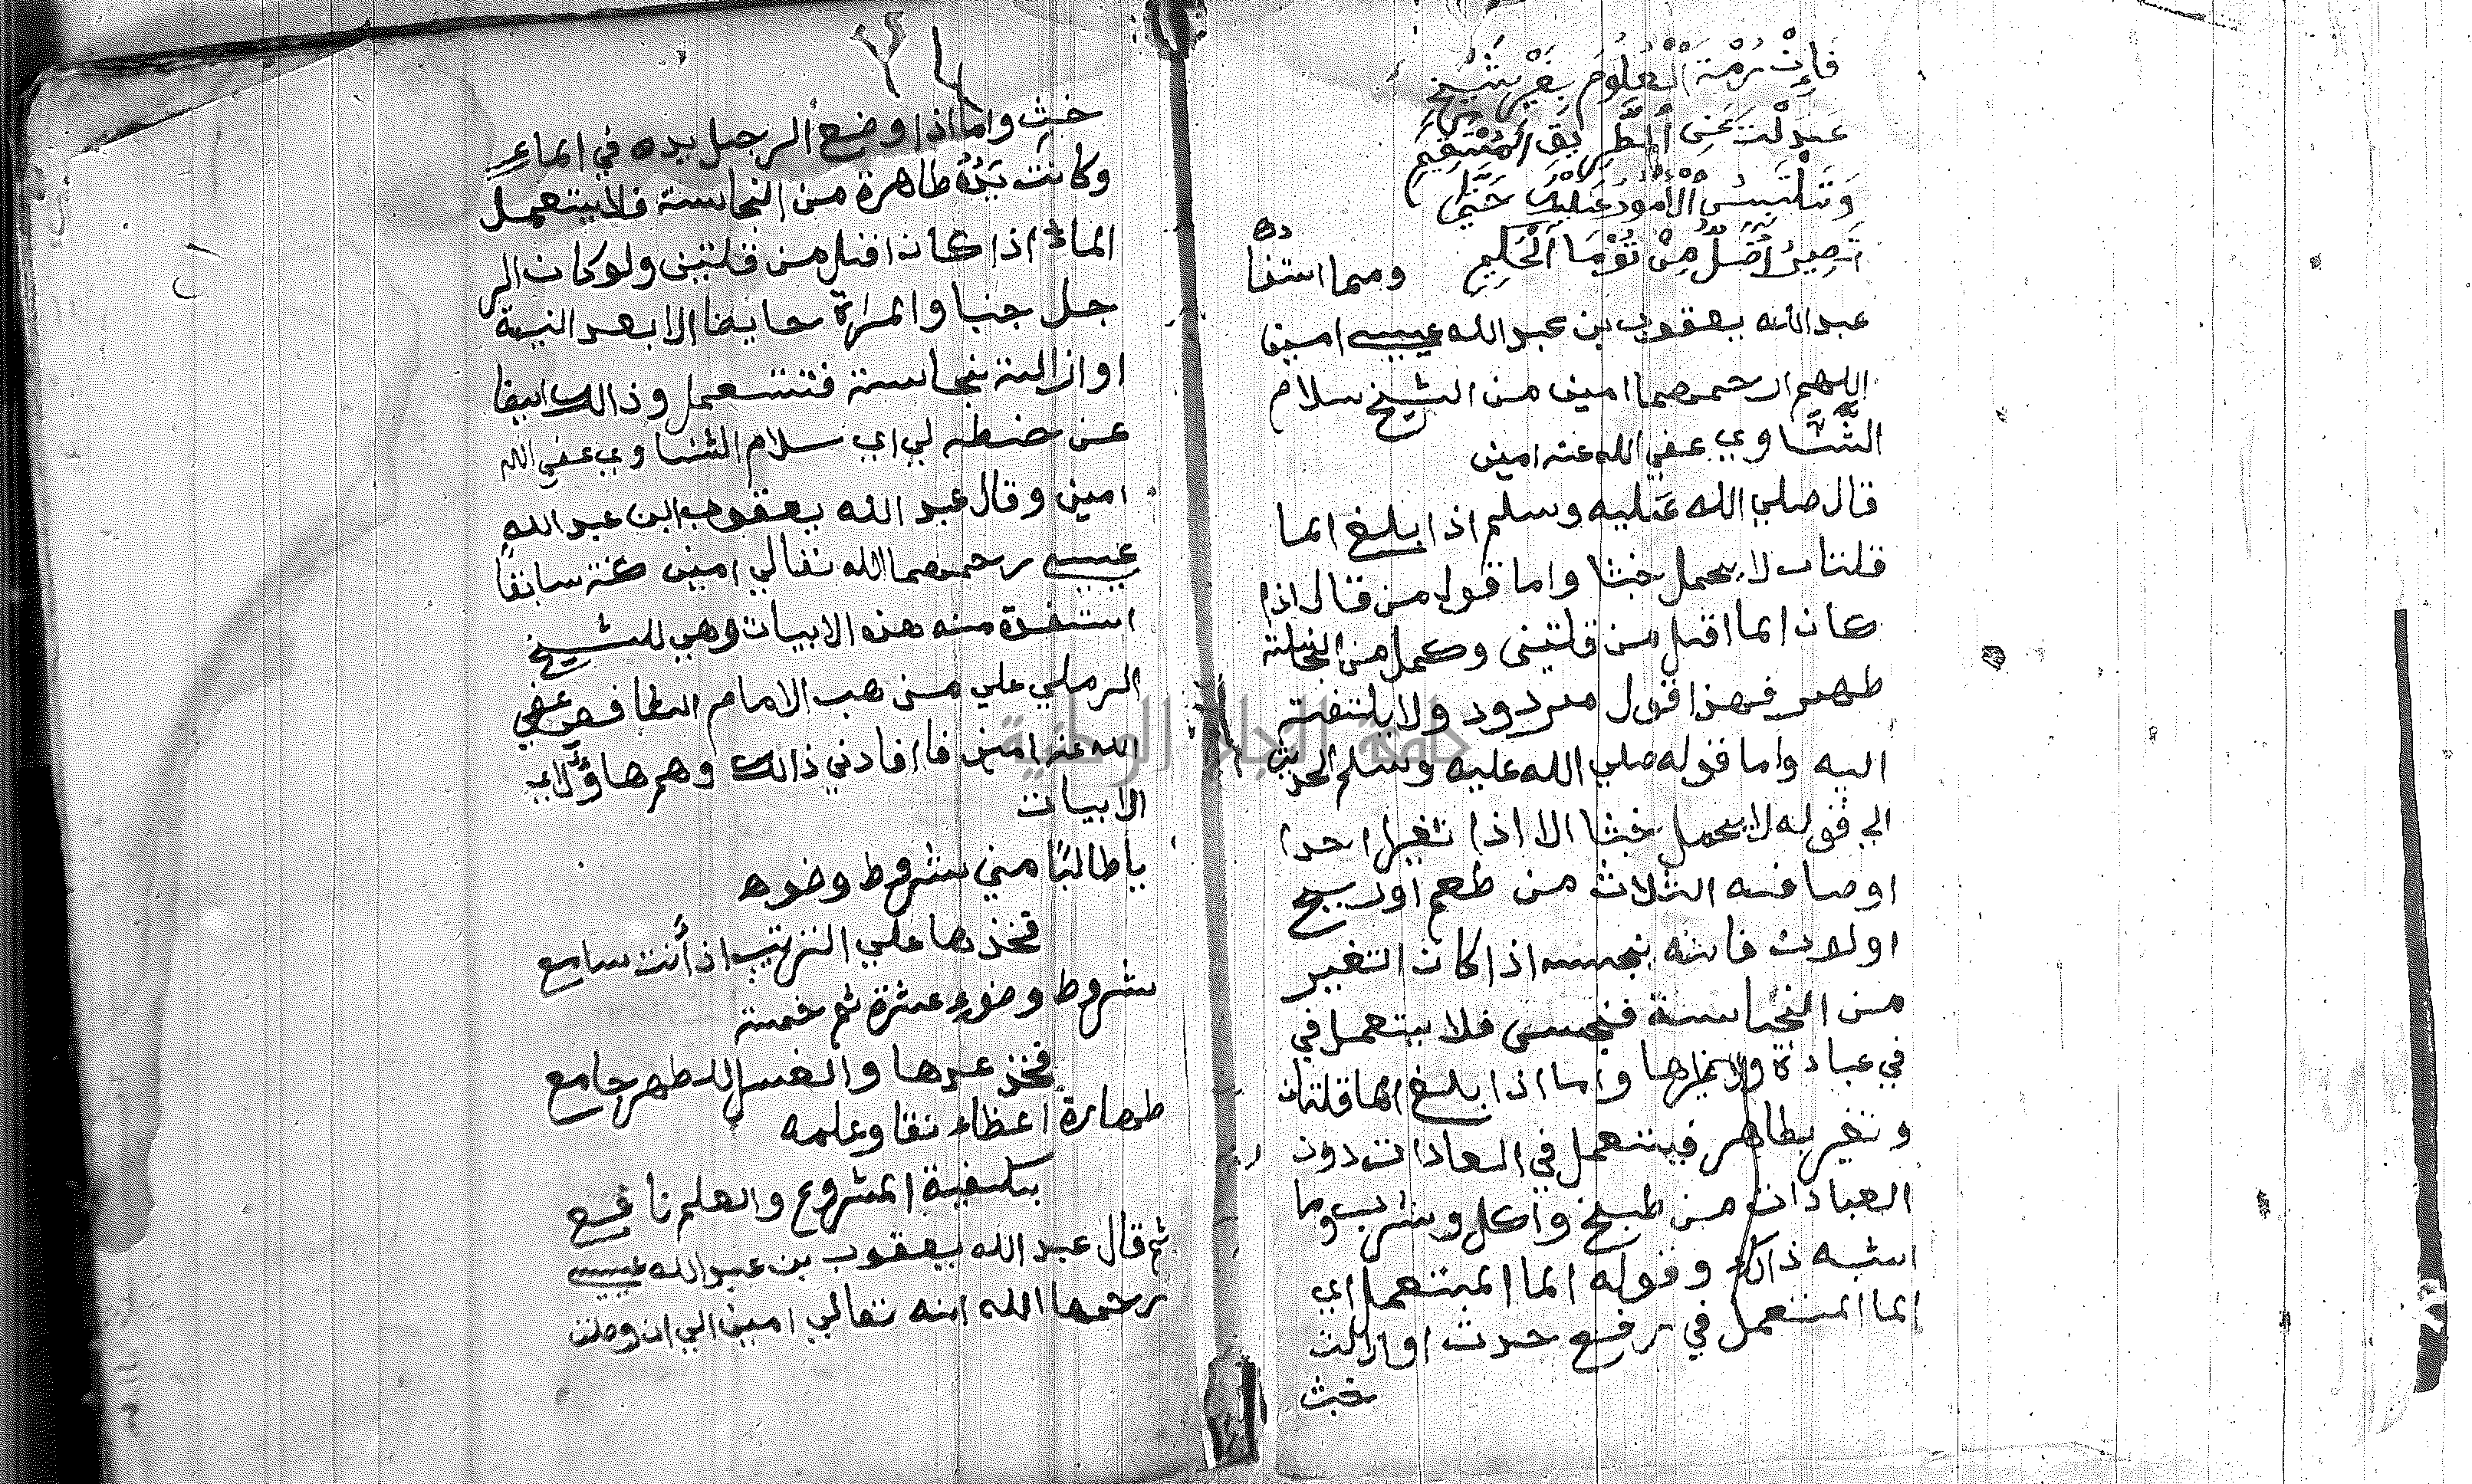 فَإِنْ رُمْتَ الْعُلُومَ بِغَيْرِ شَيْخٍ
عَدِلْتَ عَنِ الطَّرِيقِ الْمُسْتَقِيمِ
وَتَلْتَبِسُ الْأُمُورُ عَلَيْكَ حَتَّى
تَصِيرُ أَضَلَّ مِنْ تُوْمَا الْحَكِيمِ ومما استفا
ده
عبد الله يعقوب بن عبد الله عيسى امين
اللهم ارحمهما امين من الشيخ سلام
الشَّنَّاوي عفي الله عنه امين
قال صلي الله عَليه وسلم اذا بلغ الما
قلتان لا يحمل خبثا واما قول من قال اذا
كان الما اقل من قلتين وكمل من النجاسة
طهر فهذا قول مردود ولا يلتفت
اليه واما قوله صلي الله عليه وسلم الحديث
الي قوله لا يحمل خبثا الا اذا تغير احدا
اوصافه الثلاث من طعم اوريح
اولان فانه نجس اذا كان التغير
من النجاسة فنجس فلا يستعمل في
في عبادة ولا غيرها واما اذا بلغ الما قلتان
وتغير بطاهر فيستعمل في العادات دون
العبادات من طبخ واكل وشرب وما
اشبه ذالك وقوله الما المستعمل اي
الما المستعمل في رفع حدث او ازالت
خبث
٢٤
خبث واما اذا وضع الرجل يده في الماء
وكانت يَدُهُ طاهرة من النجاسة فلا يستعمل
الماء اذا كان اقل من قلتين ولو كان الر
جل جنبا والمراة حايضا الا بعد النية
او ازالت نجاسة فتستعمل وذالك ايضا
عن حفظه لي اي سلام الشناوي عفي الله
امين وقال عبد الله يعقوب ابن عبد الله
عيسى رحمهما الله تعالي امين كنت سابقا
استفدة منه هذه الابيات وهي للشيخ
الرملي علي مذهب الامام الشافعي عفي
الله عنه امين فاافادني ذالك وهم هاؤلاي
الابيات
ياطالبًا مني شروط وضوء
فخذها علي الترتيب اذ أنت سامع
شروط وضوء عشرة ثم خمسة
فخذ عدها والغسل للطهر جامع
طهارة اعظاء نقا وعلمه
بكيفية المشروع والعلم نافع
ثم قال عبد الله يعقوب بن عبد الله عيسى
رحمهما الله انه تعالي امين الي ان وصلت
جامعة النجاح الوطنية